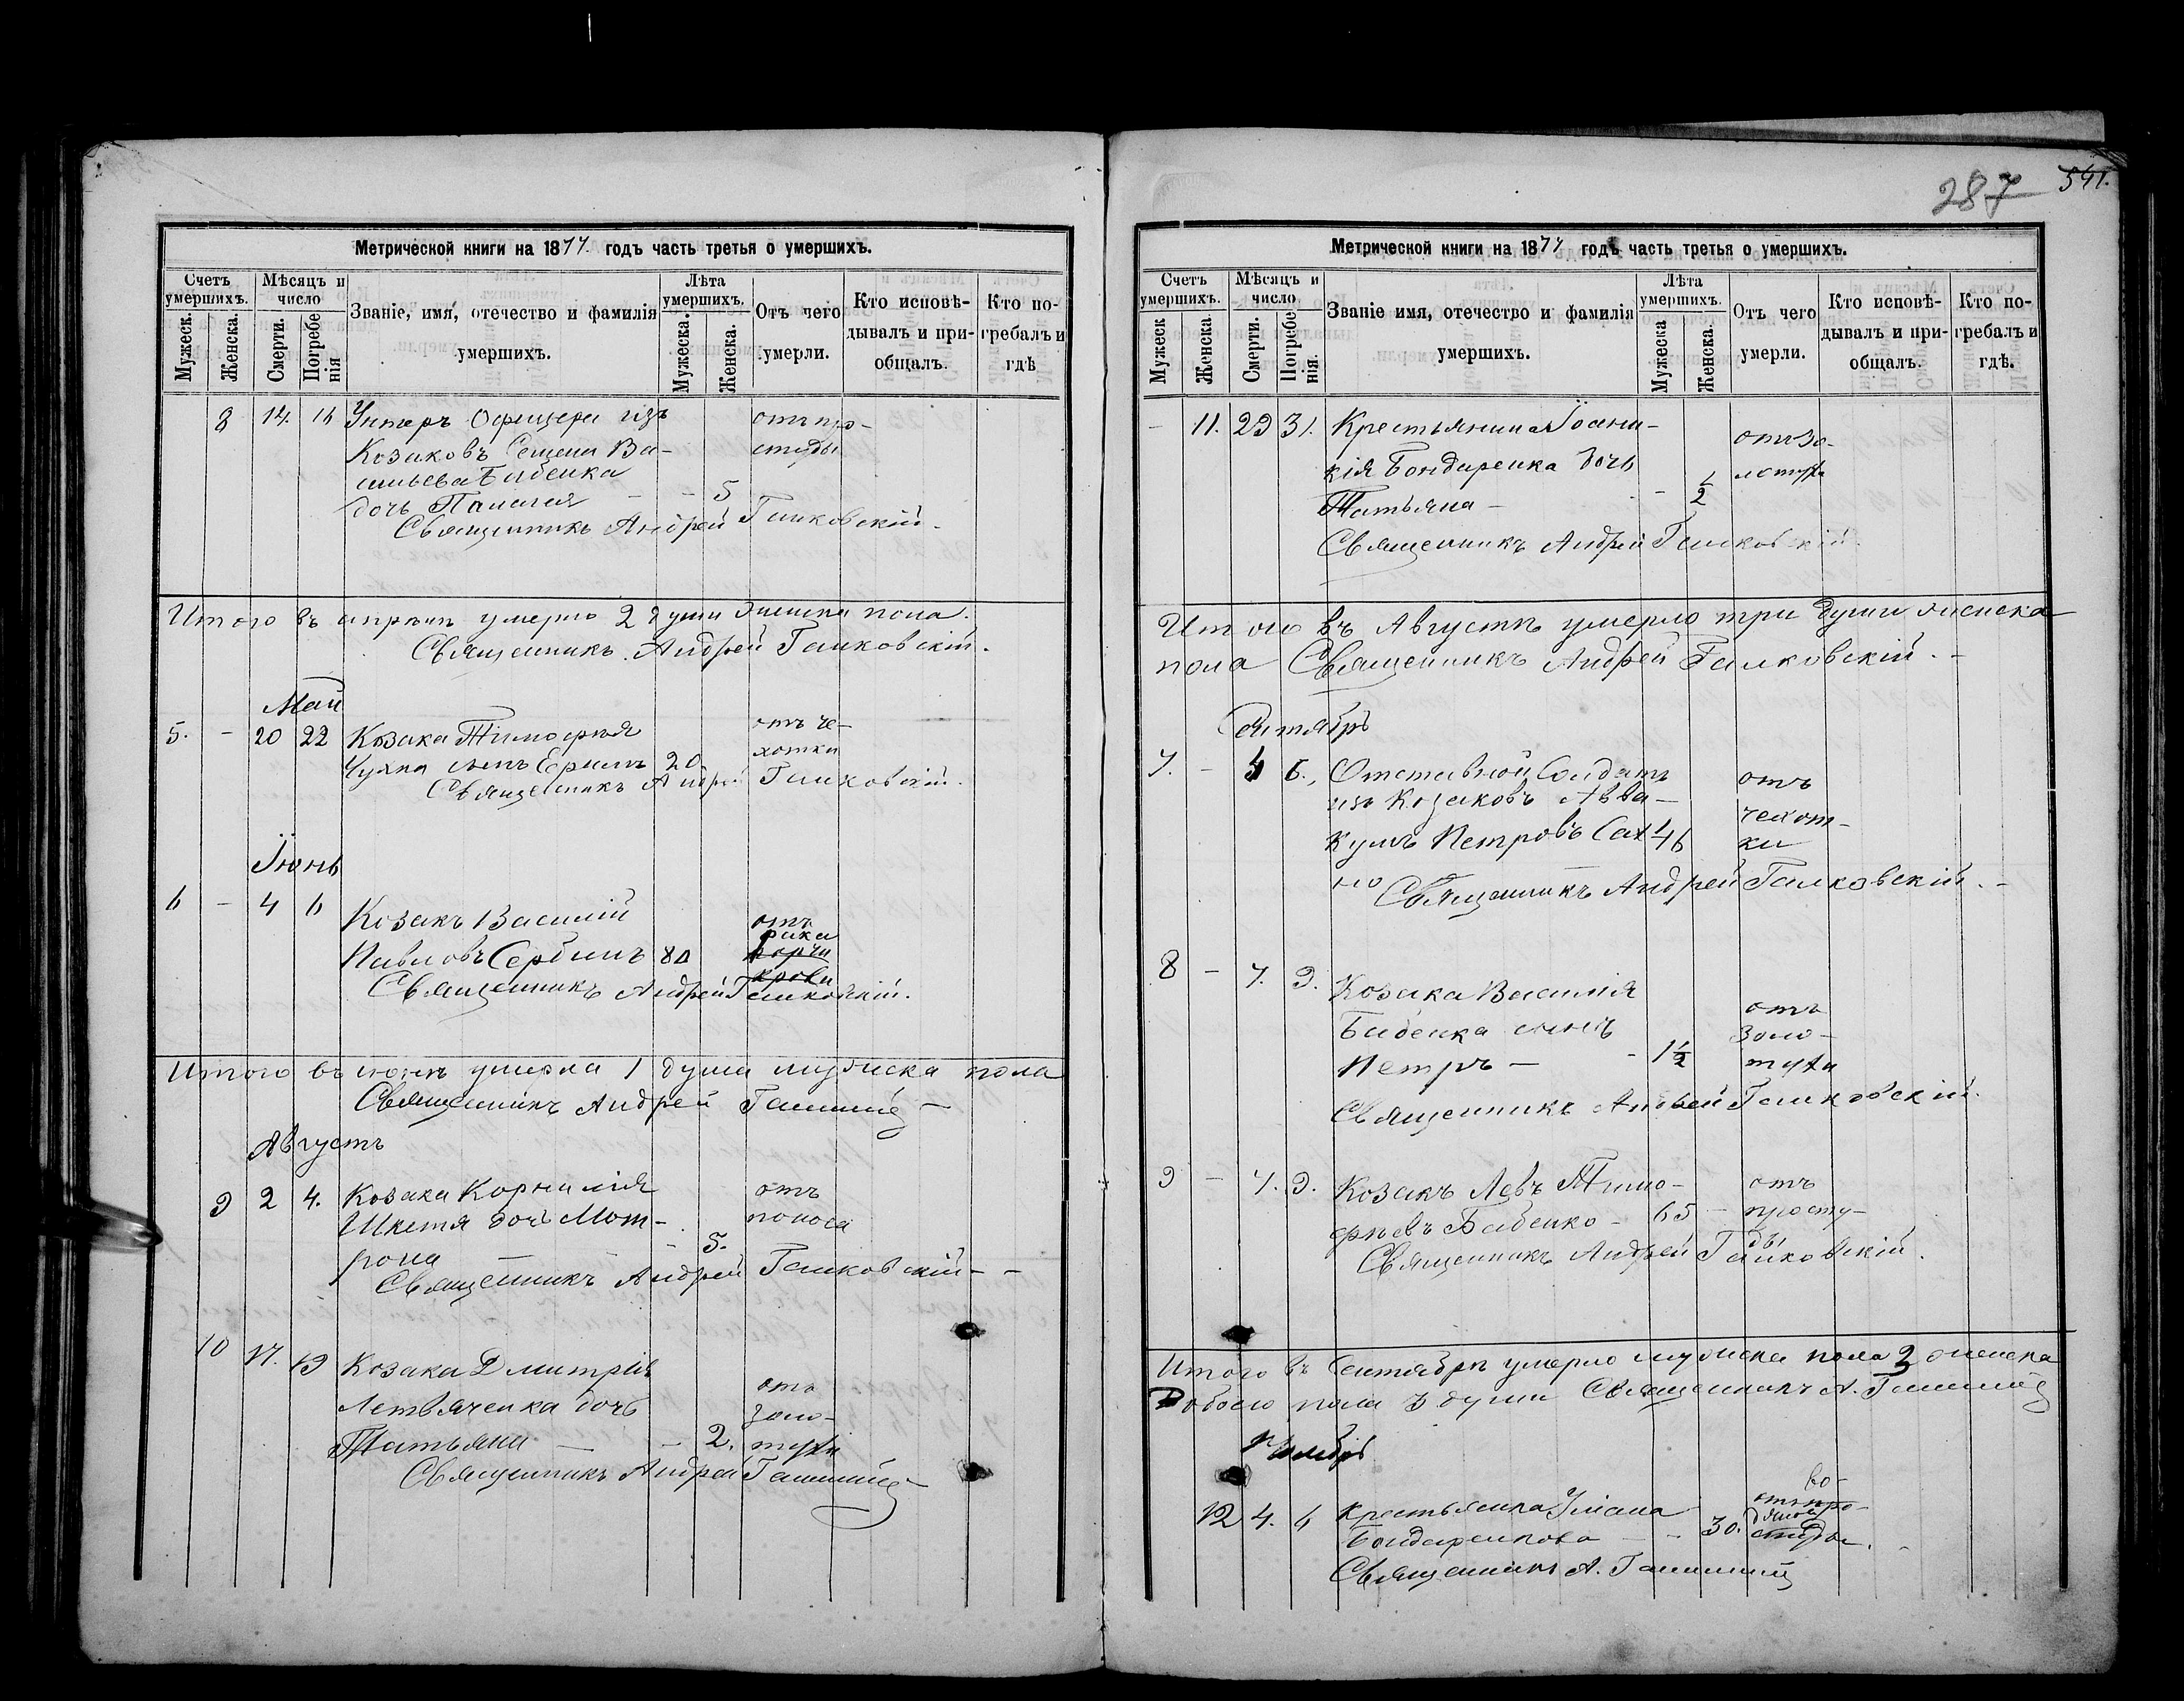 287 541.
Метрической книги на 1877. годъ часть третья о умершихъ.
Счетъ умершихъ. Мѣсяцъ и число Званіе, имя, отечество и фамилія умершихъ. Лѣта умершихъ. Отъ чего умерли. Кто исповѣдывалъ и пріобщалъ. Кто погребалъ и гдѣ
Мужеск. Женска. Смерти. Погребенія Мужеска. Женска.
8 14. 16 Унтеръ Офицера изъ отъ про-
Козаковъ Семена Ва- студы
сильева Бабенка
дочь Пелагея - - 5
Священникъ Андрей Галковскій.
Итого въ апрѣлѣ умерло 2 души женска пола.
Священникъ Андрей Галковскій.
Май
5. - 20 22 Козака Тимофѣя отъ ча-
сынъ 20 хотки
Священникъ Андрей Галковскій.
Іюнь
6 - 4 6 Козакъ Василій отъ
Павловъ Сербинъ 80 рака
порчи
крови
Священникъ Андрей Галковскій.
Итого въ іюнѣ умерла 1 душа мужеска пола
Священникъ Андрей
Августъ
9 2 4. Козака Корнилія отъ
дочь Мот- поноса
рона - 5.
Священникъ Андрей Галковскій - -
10 17. 19 Козака Дмитрія
дочь отъ золо-
Татьяна - - 2. тухи
Священникъ Андрей
Метрической книги на 1877 годъ часть третья о умершихъ.
Счетъ умершихъ. Мѣсяцъ и число Званіе имя, отечество и фамилія умершихъ. Лѣта умершихъ. Отъ чего умерли. Кто исповѣдывалъ и пріобщалъ. Кто погребалъ и гдѣ.
Мужеск Женска. Смерти. Погребенія. Мужеска Женска.
- 11. 29 31. Крестьянина Іоанн-
кія Бондаренка дочь отъ зо-
Татьяна - - 1/2 лотухи
Священникъ Андрей Галковскій.
Итого въ Августѣ умерло три души женска
пола Священникъ Андрей Галковскій. -
Сентябрь
7. - 6., Отставной Солдатъ отъ
изъ Козаковъ Авва- чахот-
кумъ Петровъ Сах 46 ки
но
Священникъ Андрей Галковскій. -
8 - 7. 9. Козака Василія
Бабенка сынъ отъ золо-
Петръ - - 1 1/2 тухи
Священникъ Андрей Галковскій.
9 - 7. 9. Козакъ Левъ Тимо- отъ
фѣевъ Бабенко - 65 - просту-
ды
Священникъ Андрей Галковскій.
Итого въ Сентябрѣ умерло мужеска пола 3 женска
обоего пола 3 души Священникъ А.
12 4. 6 Крестьянка Уліана отъ про-
Бондаренкова - - 30. студы.
Священникъ А.